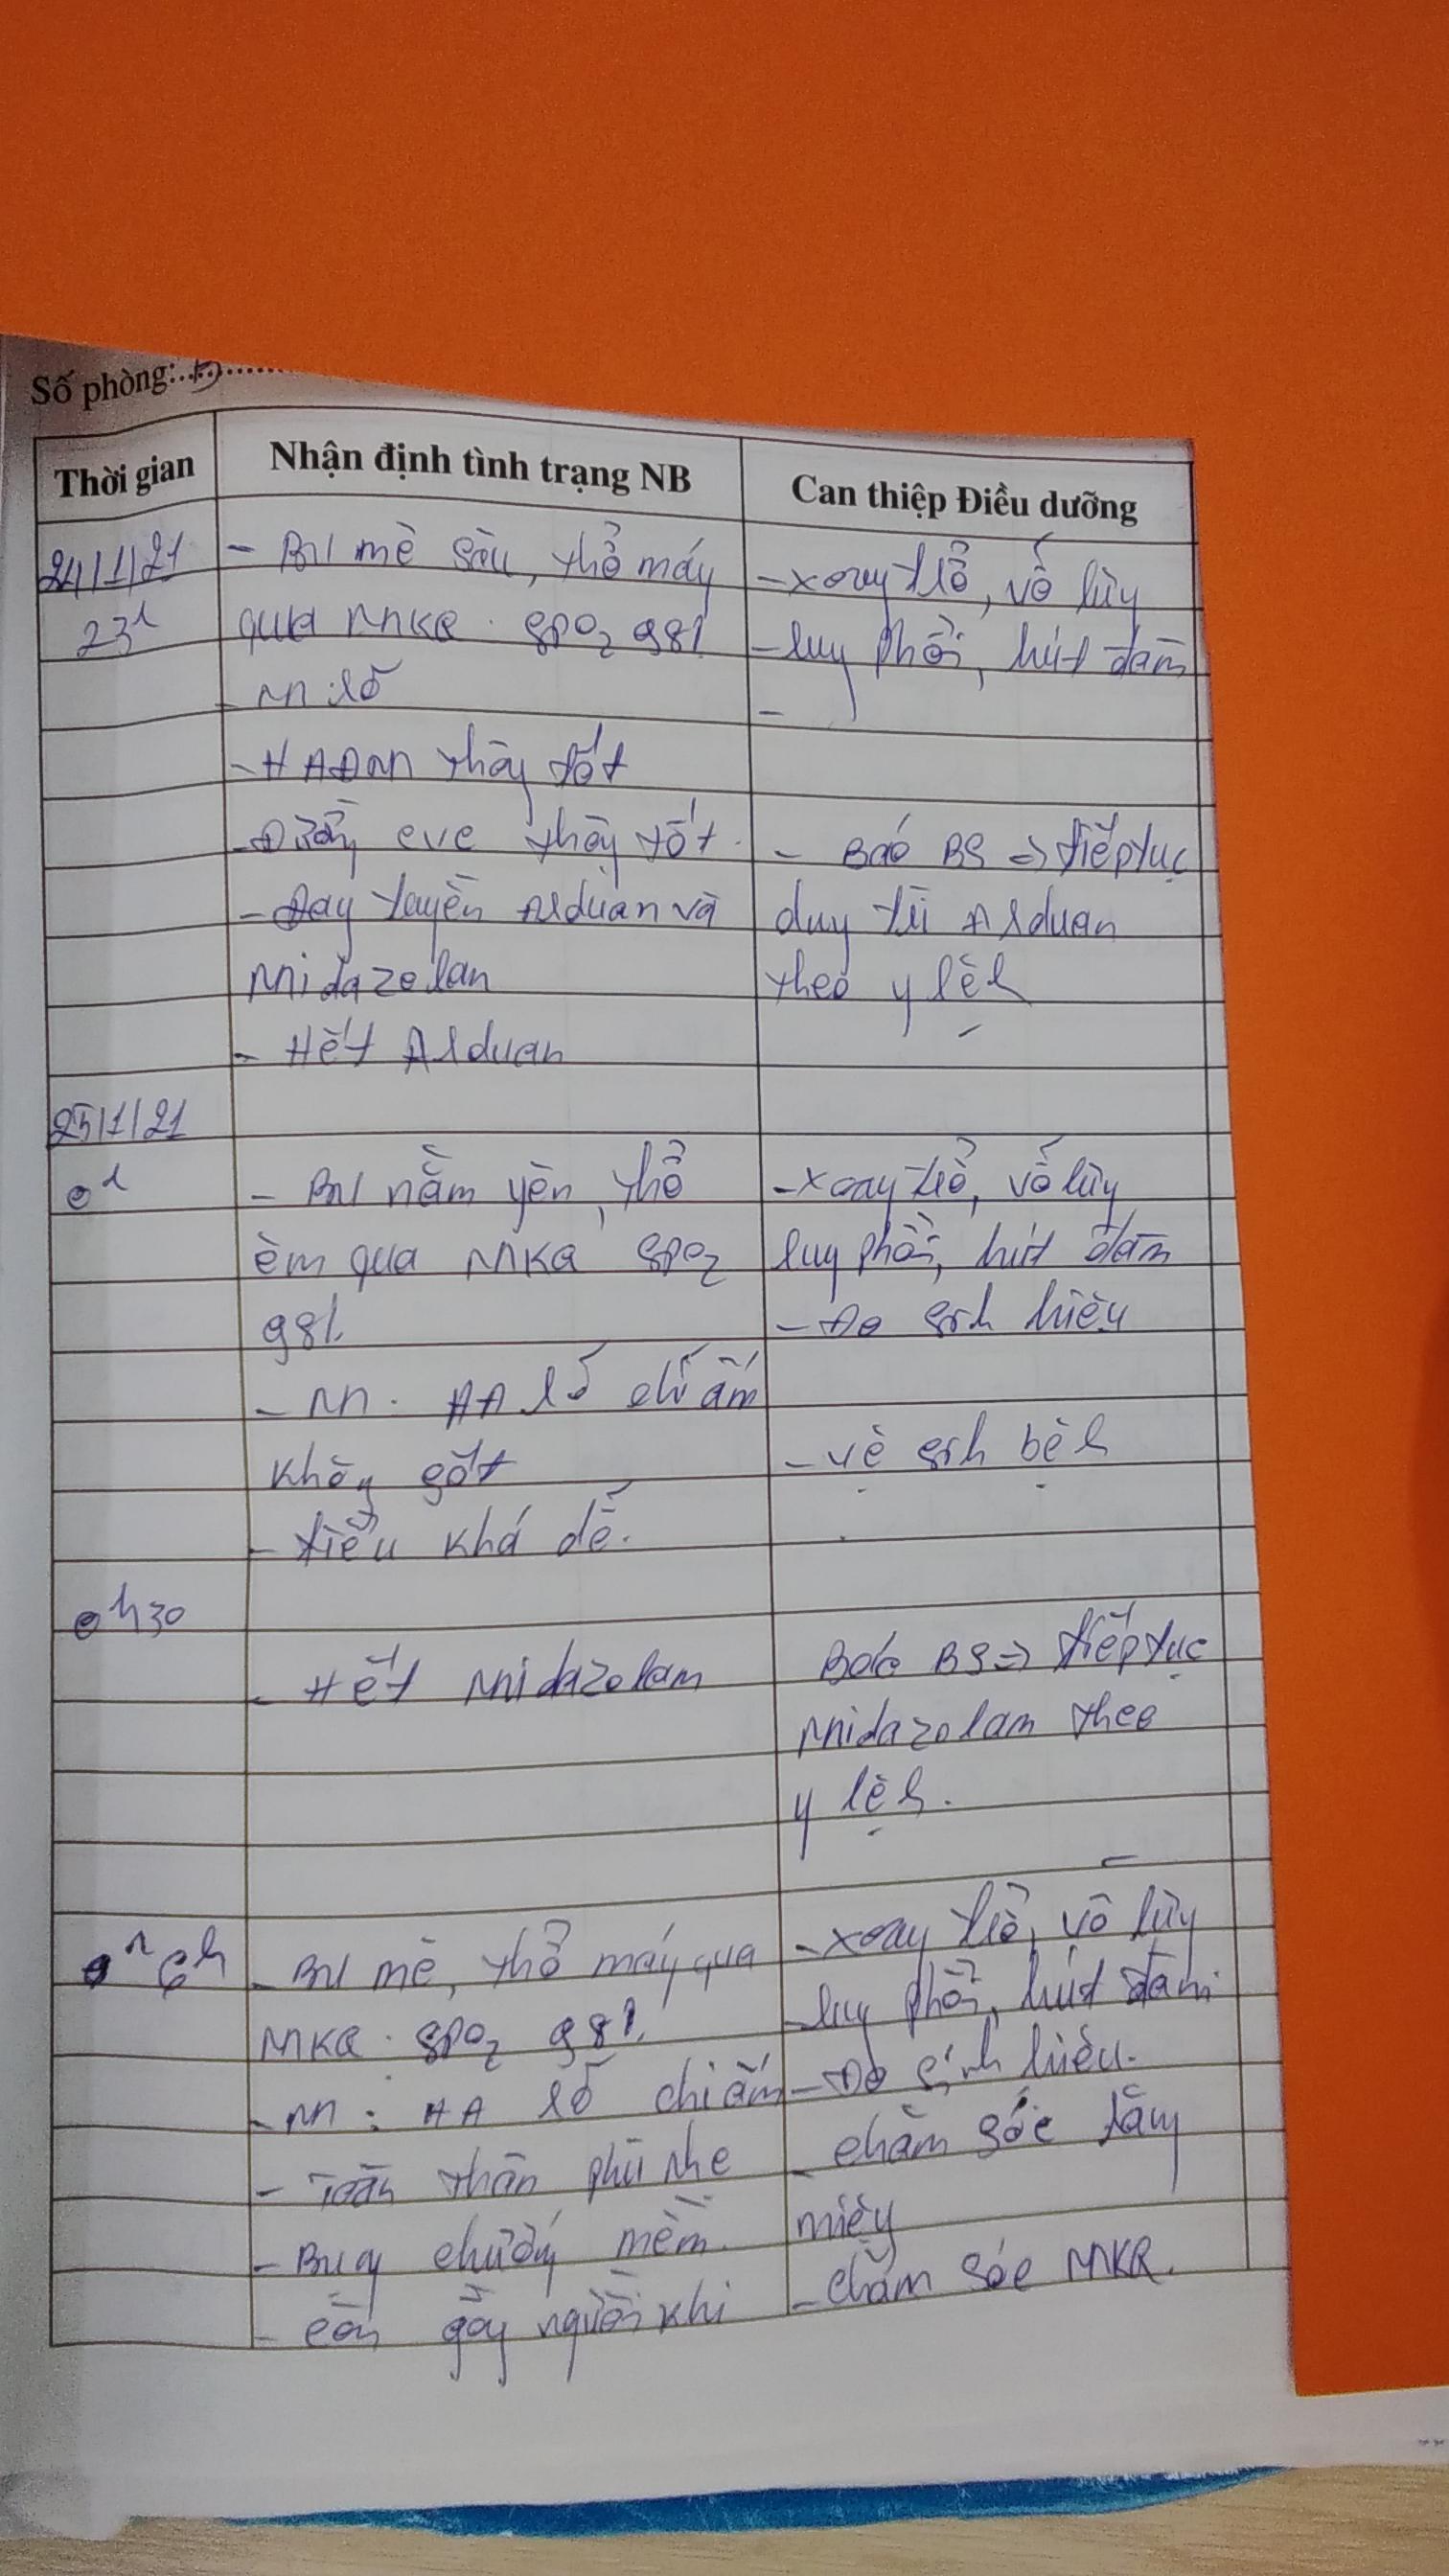 Số phòng:...5......
Thời gian
Nhận định tình trạng NB
Can thiệp Điều dưỡng
24/1/21
- BN mê sâu, thở máy
- xoay trở, vỗ lưng
23h
qua MKQ. SPO2 98%
- rung phổi, hút đàm
- M:
-
- HAĐM thấy tốt
- Đường thấy tốt.
- Báo BS => tiếp tục
- Đang truyền Arduan và
duy trì Arduan
Midazolan
theo y lệnh
- Hết Arduan
25/1/21
0h
- BN nằm yên, thở
- xoay trở, vỗ lưng
êm qua MKQ SPO2
rung phổi, hút đàm
98%.
- Đo sinh hiệu
- M. HA rõ chi ấm
không sốt
- vệ sinh bệnh
- tiểu khá dễ.
0h30
- Hết Midazolam
Báo BS => tiếp tục
Midazolam theo
y lệnh.
6h
- BN mê, thở máy qua
- xoay trở, vỗ lưng
MKQ. SPO2 98%.
- rung phổi, hút đàm.
- M: HA rõ chi ấm
- Đo sinh hiệu.
- Toàn thân phù nhẹ
- chăm sóc răng
- Bụng chướng mềm.
miệng
- còn gồng người khi
- chăm sóc MKQ.